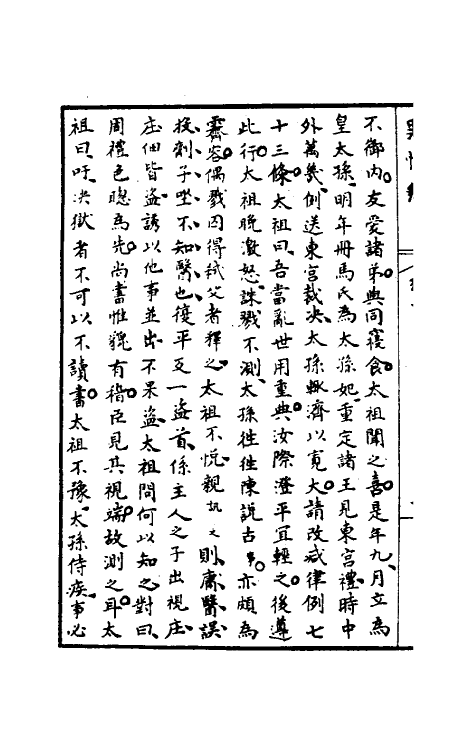 不御內友愛諸弟與同寢食太祖聞之喜是年九月立為
皇太孫明年冊馬氏為太孫妃重定諸王見東宮禮時中
外萬幾例送東宮裁决太孫輒濟以寬大請改减律例七
十三條太祖曰吾當亂世用重典汝際澄平宜輕之後遵
此行太祖晚激怒誅戮不測太孫徃徃陳說古事亦頗為
霽容偶戮囚得弒父者釋之太祖不悦親訊之則庸醫誤
投劑子㘴不知醫也復平反一盗首係主人之子出視庄
庄佃皆盗誘以他事並出不果盗太祖問何以知之對曰
周禮色聽為先尚書惟貌有稽臣見其視端故測之耳太
祖曰吁决獄者不可以不讀書太祖不豫太孫侍疾事必